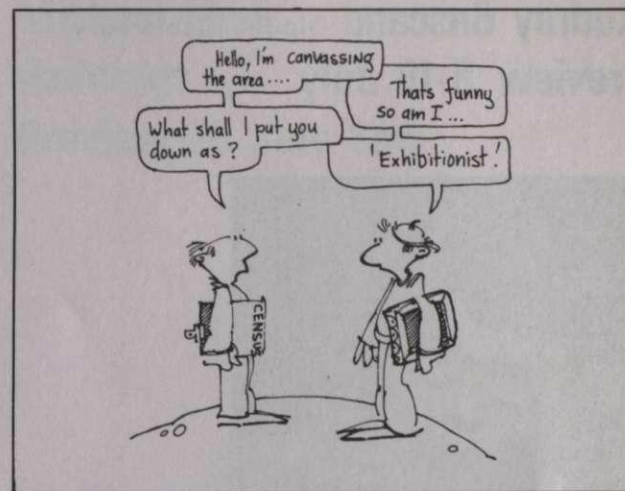 Hello, I'm canvassing
the area....
Thats funny
so am I...
What shall I put you
down as?
'Exhibitionist!'
CENSUS